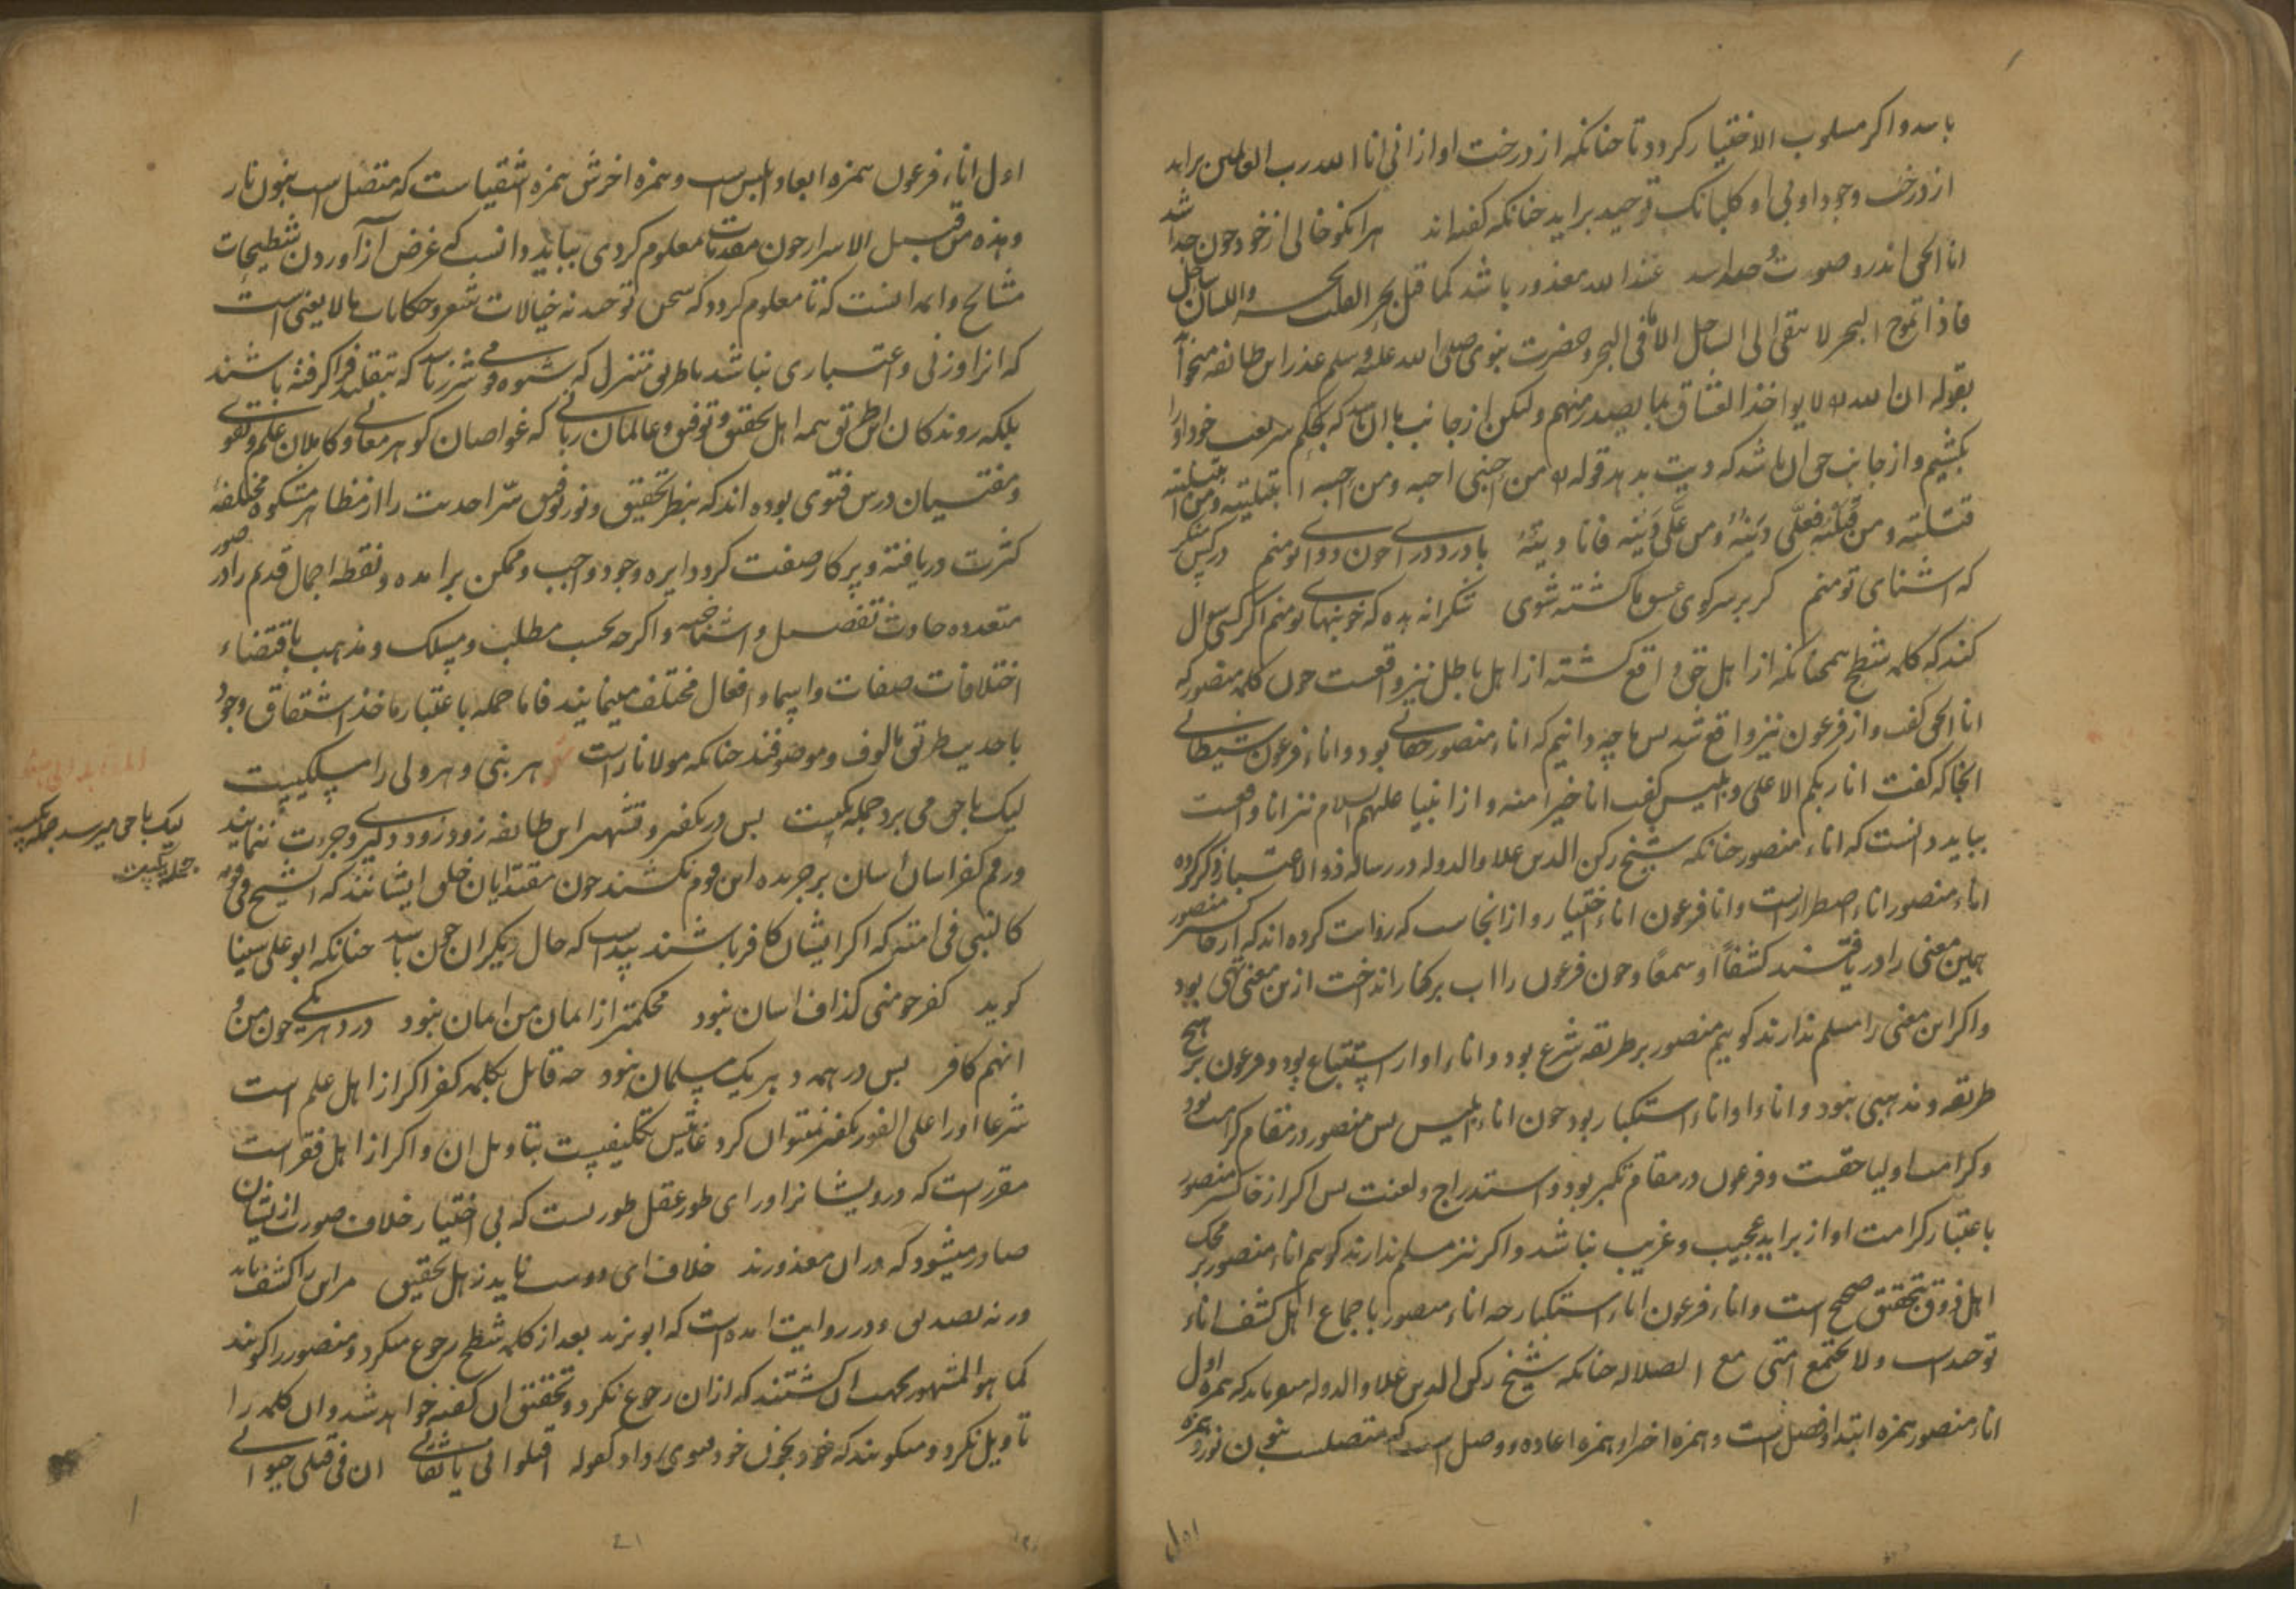 باشد و اگر مسلوب الاختیار گردد تا چنانکه از درخت اواز انی انا الله رب العالمین براید
از درخت وجود او بی او کلبانک توحید براید چنانکه کفته اند هر انکو خالی از خود چون جدا شد
انا الحق اندرو صورت و صدا شد عند الله معذور باشد کما قیل بحر القلب واللسان ساحل
فاذا تموج البحر لا یبقی الی الساحل الا ما فی البحر و حضرت نبوی صلی الله علیه وسلم عذر این طائفه میخواهد
بقوله ان الله لا یواخذ العشاق بما یصدر منهم ولیکن از جانب ما ان باشد که بحکم شریعت خود او را
بکشیم و از جانب حق ان باشد که دیت بدهد قوله من احبنی احبه ومن احبه ابتلیته ومن ابتلیته
قتلته ومن قتلته فعلی دیته ومن علی دیته فانا دیته با درد درای چون دوای تو منم در کس منکر
که اشنای تو منم کر بر سر کوی عشق ما کشته شوی شکرانه بده که خونبهای تو منم اکر کسی سوال
کند که کلمه شطح همچنانکه از اهل حق واقع کشته از اهل باطل نیز واقعست چون کلمه منصور که
انا الحق کفت و از فرعون نیز واقع شد پس ما چه دانیم که اناء منصور حقانی بود و اناء فرعون شیطانی
انجا که کفت انا ربکم الاعلی و ابلیس کفت انا خیر منه و از انبیا علیهم السلام نیز انا واقعست
بباید دانست که اناء منصور چنانکه شیخ رکن الدین علاء الدوله در رساله ذو الاعتبار ذکر کرده
اناء منصور اناء اضطرارست و انا فرعون اناء اختیار و از انجاست که روایت کرده اند که از خاکستر منصور
همین معنی را دریافتند کشفاً او سمعاً و چون فرعون را اب بر کنار انداخت ازین معنی تهی بود
و اکر این معنی را مسلم ندارند کوییم منصور بر طریقه شرع بود و اناء او از استتباع بود و فرعون بر هیچ
طریقه و مذهبی نبود و اناء او اناء استکبار بود چون اناء ابلیس پس منصور در مقام کرامت بود
و کرامت اولیا حقست و فرعون در مقام تکبر بود و استدراج و لعنت پس اکر از خاکستر منصور
باعتبار کرامت اواز براید عجیب و غریب نباشد و اکر نیز مسلم ندارند کوییم اناء منصور بر محک
اهل ذوق و تحقیق صحیح است و اناء فرعون اناء استکبار چه اناء منصور باجماع اهل کشف اناء
توحیدست ولا یجتمع امتی مع الضلاله چنانکه شیخ رکن الدین علاء الدوله میفرماید که همزه اول
اناء منصور همزه ابتدا و فصل است و همزه اخر او همزه اعاده و وصل است که متصلست بنون نور و همزه
اول
اول اناء فرعون همزه ابعاد و ابلیس است و همزه اخرش همزه اشقیاست که متصل است بنون نار
و هذه من قبیل الاسرار چون مقدمات معلوم کردی بباید دانست که غرض از آوردن شطحیات
مشائخ و ائمه انست که تا معلوم کردد که سخن توحید نه خیالات شعر و حکایات مالایعنی است
که انرا وزنی و اعتباری نباشد یا طریق تنزل که شیوه قومی که بتقلید فرا کرفته باشند
بلکه روندکان این طریق همه اهل تحقیق و توفیق و عالمان ربانی که غواصان کوهر معانی و کاملان علم و تقوی
و مفتیان درس فتوی بوده اند که بنظر تحقیق و نور توفیق سر احدیت را از مظاهر مشکوه مختلفه
کثرت دریافته و پرکار صفت کرد دایره وجود واجب و ممکن برامده و نقطه اجمال قدیم را در صور
متعدده حادث تفصیل و اشناخته و اکرچه بحسب مطلب و مسلک و مذهب باقتضاء
اختلافات صفات و اسما و افعال مختلف مینمایند فاما جمله باعتبار ماخذ اشتقاق وجود
باحدیت طریق مالوف و موصوفند چنانکه مولانا راست هر نبی و هر ولی را مسلکیست
لیک با حق می برد جمله یکیست پس در تکفیر و تشهیر این طائفه زود زود دلیری و جرءت ننمایند
و رقم کفر اسان اسان بر جریده این قوم نکشند چون مقتدایان خلق ایشانند که الشیخ فی قومه
کالنبی فی امته که اکر ایشان کافر باشند پیداست که حال دیکران چون باشد چنانکه ابو علی سینا
کوید کفر چو منی کذاف اسان نبود محکمتر از ایمان من ایمان نبود در دهر یکی چون من و
انهم کافر پس در همه دهر یک مسلمان نبود چه قائل بکلمه کفر اکر از اهل علم است
شرعا او را علی الفور تکفیر نتوان کرد غایتش تکلیفیست بتاویل ان و اکر از اهل فقر است
مقرر است که درویشانرا ورای طور عقل طوریست که بی اختیار خلاف صورت ازیشان
صادر میشود که دران معذورند خلاف ای دوست ناید ز اهل تحقیق مر این را کشف باید
ورنه تصدیق و در روایت امده است که ابو یزید بعد از کلمه شطح رجوع میکرد و منصور را کویند
کما هو المشهور بجهت ان کشتند که ازان رجوع نکرد و تحقیق ان کفته خواهد شد و ان کلمه را
تاویل نکرد و میکویند که خود بخون خود فتوی داد کقوله اقتلونی یا ثقاتی ان فی قتلی حیواتی
لیک با حق میرسد جمله یکیست
جمله یکیست
21